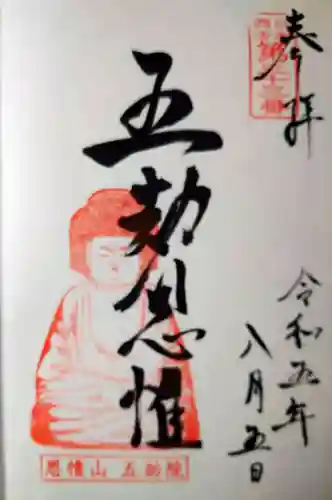 奉拝
五劫思惟
令和五年
八月五日
思惟山五劫院